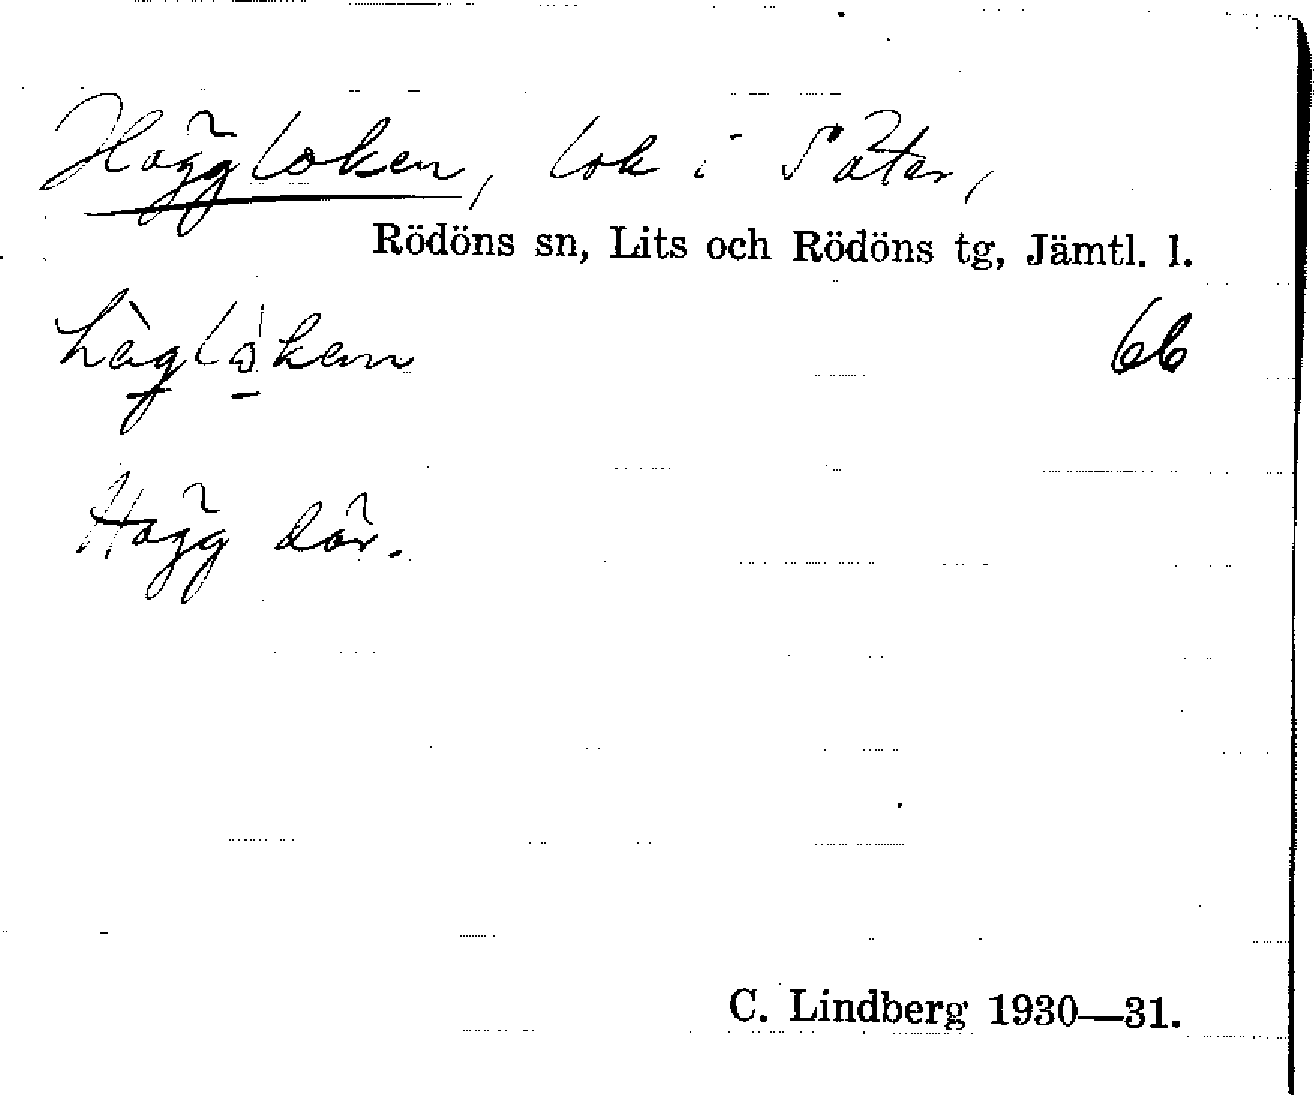 Häggloken, lok i Säter,
Rödöns sn, Lits och Rödöns tg, Jämtl. l.
66
Hägg där.
C. Lindberg 1930—31.